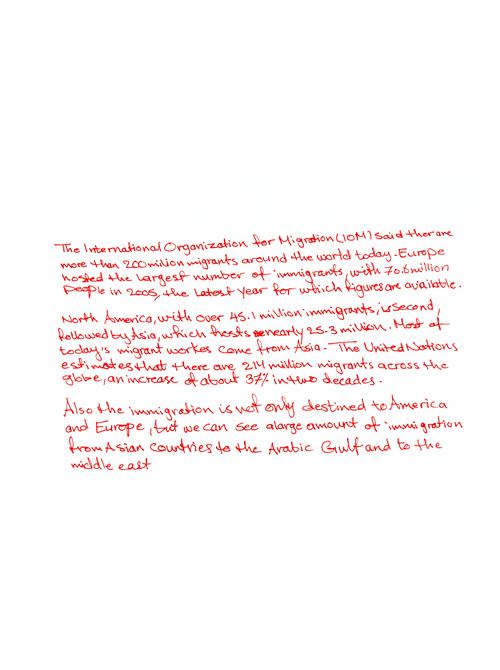 The International Organization for Migration (IOM) said ther are
more than 200 million migrants around the world today. Europe
hosted the largest number of immigrants, with 70.6 million
people in 2005, the latest year for which figures are available.
North America, with over 45.1 million immigrants, is second,
followed by Asia, which hosts nearly 25.3 million. Most of
today's migrant workes come from Asia. The United Nations
estimates that there are 214 million migrants across the
globe, an increase of about 37% in two decades.
Also the immigration is not only destined to America
and Europe, but we can see a large amount of immigration
from Asian countries to the Arabic Gulf and to the
middle east